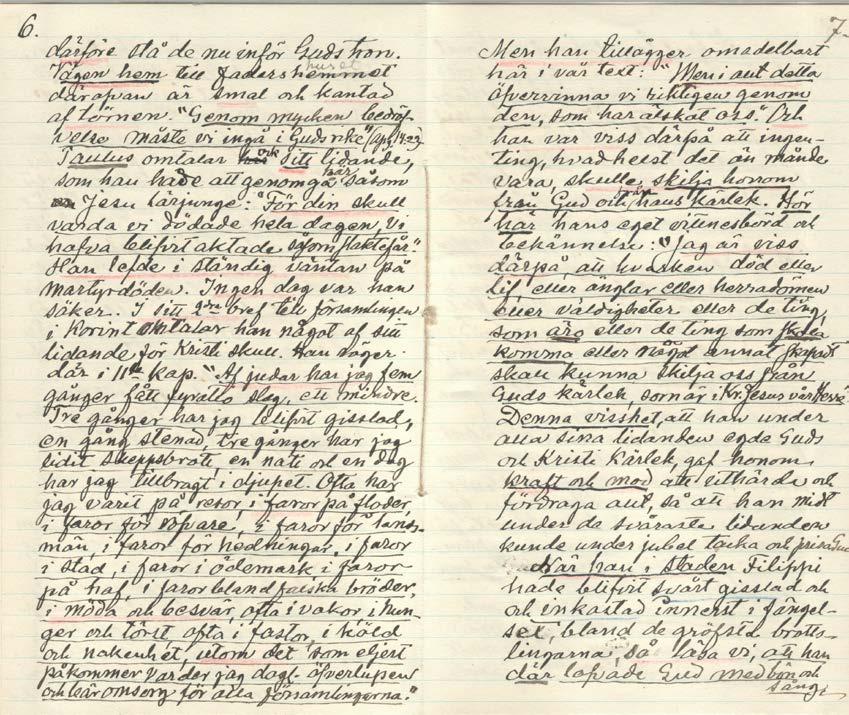 6.
därföre stå de nu inför Guds tron.
Vägen hem till fadershemmet
huset
däruppe är smal och kantad
af törnen. "Genom mycken bedröf-
velse måste vi ingå i Guds rike" (Apg. 14:22)
Paulus omtalar ock sitt lidande,
som han hade att genomgå här såsom
en Jesu lärjunge: "För din skull
varda vi dödade hela dagen, vi
hafva blifvit aktade såsom slaktefår."
Han lefde i ständig väntan på
martyrdöden. Ingen dag var han
säker. I sitt 2dra bref till församlingen
i Korint omtalar han något af sitt
lidande för Kristi skull. Han säger
där i 11te kap. "Af judar har jag fem
gånger fått fyratio slag, ett mindre.
Tre gånger har jag blifvit gisslad,
en gång stenad, tre gånger har jag
lidit skeppsbrott, en natt och en dag
har jag tillbragt i djupet. Ofta har
jag varit på resor, i faror på floder,
i faror för röfvare, i faror för lands-
män, i faror för hedningar, i faror
i stad, i faror i ödemark i faror
på haf, i faror bland falska bröder,
i möda och besvär, ofta i vakor, i hun-
ger och törst, ofta i fastor, i köld
och nakenhet, utom det som eljest
påkommer varder jag dagl. öfverlupen
och bär omsorg för alla församlingarna."
7.
Men han tillägger omedelbart
här i vår text: "Men i allt detta
öfvervinna vi rikligen genom
den, som har älskat oss." Och
han var viss därpå att ingen-
ting, hvad helst det än månde
vara, skulle skilja honom
från Gud och hans kärlek. Hör
här hans eget vittnesbörd och
bekännelse: "Jag är viss
därpå, att hvarken död eller
lif, eller änglar eller herradömen
eller väldigheter eller de ting,
som äro eller de ting som skola
komma eller något annat skapadt
skall kunna skilja oss från
Guds kärlek, som är i Kr. Jesus vår Herre"
Denna visshet, att han under
alla sina lidanden egde Guds
och Kristi kärlek, gaf honom
kraft och mod att uthärda och
fördraga allt, så att han midt
under de svåraste lidanden
kunde under jubel tacka och prisa Gud
När han i staden Filippi
hade blifvit svårt gisslad och
och inkastad innerst i fängel-
set, bland de gröfsta brotts-
lingarna, så läsa vi, att han
där lofvade Gud med bön och
sång.